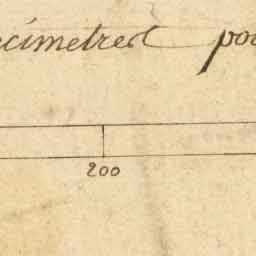 ecimetres po
200